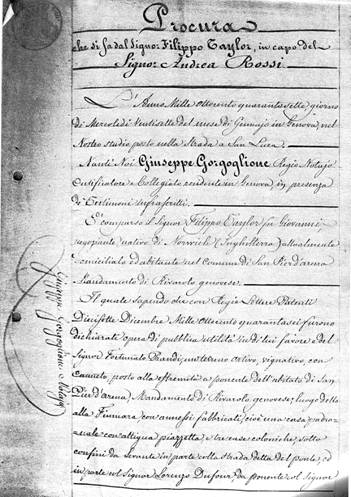 Procura
che si fa dal Signor Filippo Taylor, in capo del
Signor Andrea Rossi.
L'Anno Mille Ottocento quarantasette, giorno
di Mercoledì Ventisette del mese di Gennajo in Genova, nel
Nostro studio posto nella Strada a San Luca
Nanti Noi Giuseppe Gorgoglione Regio Notajo
Certificatore e Collegiato residente in Genova, in presenza
di Testimonj infrascritti
È comparso il Signor Filippo Taylor fu Giovanni
negoziante nativo di Norwich (Inghilterra) attualmente
domiciliato ed abitante nel Comune di San Pier d'arena
Mandamento di Rivarolo genovese.
Il quale sapendo che con Regie Lettere Patenti
Diciasette Dicembre Mille Ottocento quarantasei furono
dichiarati opera di pubblica utilità in di lui favore e del
Signor Fortunato Prandi, un terreno ortivo, vignativo, con
canneto, posto alla estremità a ponente dell'abitato di San
Pier d'arena, Mandamento di Rivarolo genovese, luogo detto
alla Fiumara con annessi fabbricati, cioè una casa padro=
=nale con attigua piazzetta, e tre case coloniche, sotto
confini da levante in parte colla strada detta del ponte, ed
in parte col Signor Lorenzo Dufour, da ponente col Signor
Giuseppe Gorgoglione Notajo